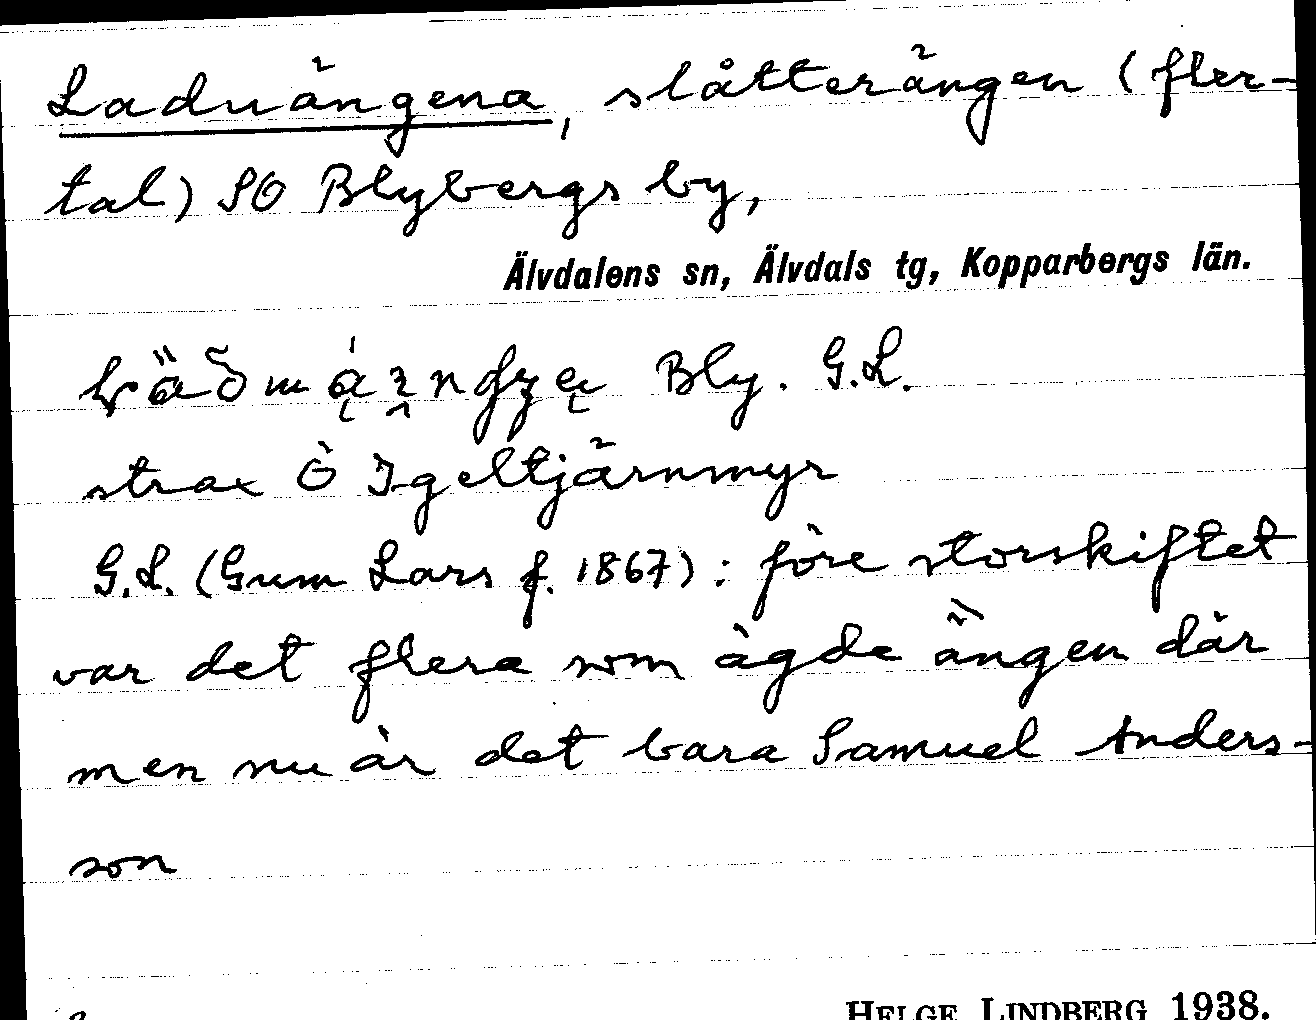 Laduängena, slåtterängen (fler-
tal) SO Blybergs by,
Älvdalens sn, Älvdals tg, Kopparbergs län.
Bly. G.L.
strax Ö Igeltjärnmyr
G.L. (Gum Lars f. 1867): före storskiftet
var det flera som ägde ängen där
men nu är det bara Samuel Anders-
son
HELGE LINDBERG 1938.